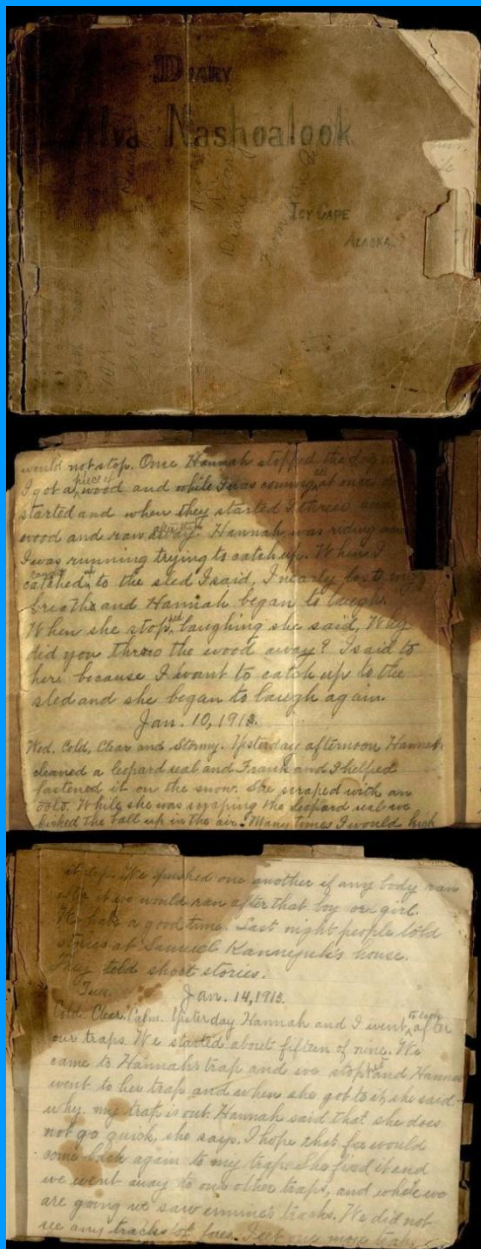 DIARY
Alva Nashoalook
ICY CAPE
ALASKA.
would not stop. Once Hannah stopped the dog
I got a piece of wood and while I was coming at once
started and when they started I threw
wood and ran Hannah was riding and
I was running trying to catch up. When I
catched to the sled I said, I nearly lost my
breathe and Hannah began to laugh.
When she stopped laughing she said, Why
did you throw the wood away? I said to
her because I want to catch up to the
sled and she began to laugh again.
Jan. 10, 1913.
Wed. Cold, Clear and Stormy. Yesterday afternoon Hannah
cleaned a leopard seal and Frank and I helped
fastened it on the snow. She scraped with an
oolo. While she was scraping the leopard seal we
kicked the ball up in the air. Many times I would kick
it up. We pushed one another if any body ran
after it we would ran after that boy or girl.
We have a good time. Last night people told
stories at Samuel house.
They told short stories.
Tues. Jan. 14, 1913.
Cold. Clear. Calm. Yesterday Hannah and I went to look after
our traps. We started about fifteen of nine. We
came to Hannah's trap and we stop and Hannah
went to her trap and when she got to it, she said
why my trap is out. Hannah said that she does
not go quick, she says, I hope that fox would
come back again to my trap. She fixed it and
we went away to our other traps, and while we
are going we saw ermine's tracks. We did not
see any tracks of foxes. more traps